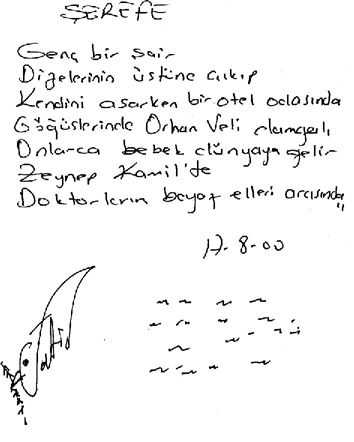 ŞEREFE
Genç bir şair
Dizelerinin üstüne çıkıp
Kendini asarken bir otel odasında
Göğüslerinde Orhan Veli damgalı
Onlarca bebek dünyaya gelir
Zeynep Kamil'de
Doktorların beyaz elleri arasında
17-8-00